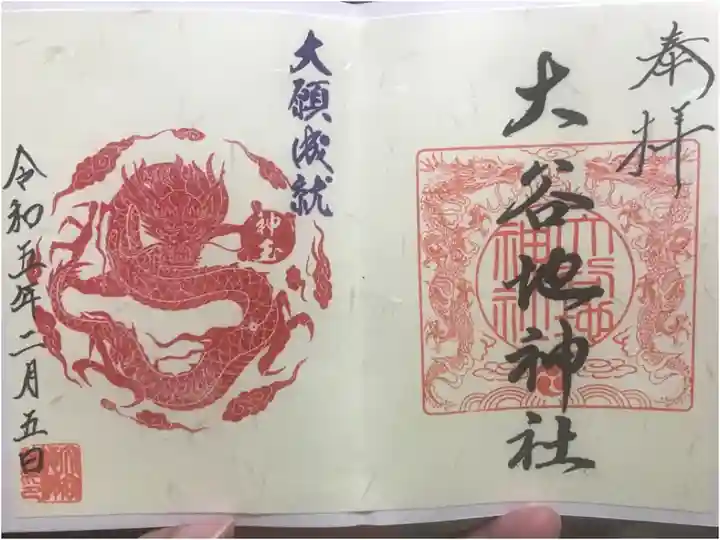 奉拝
大谷地神社
大願成就
神玉
令和五年二月五日